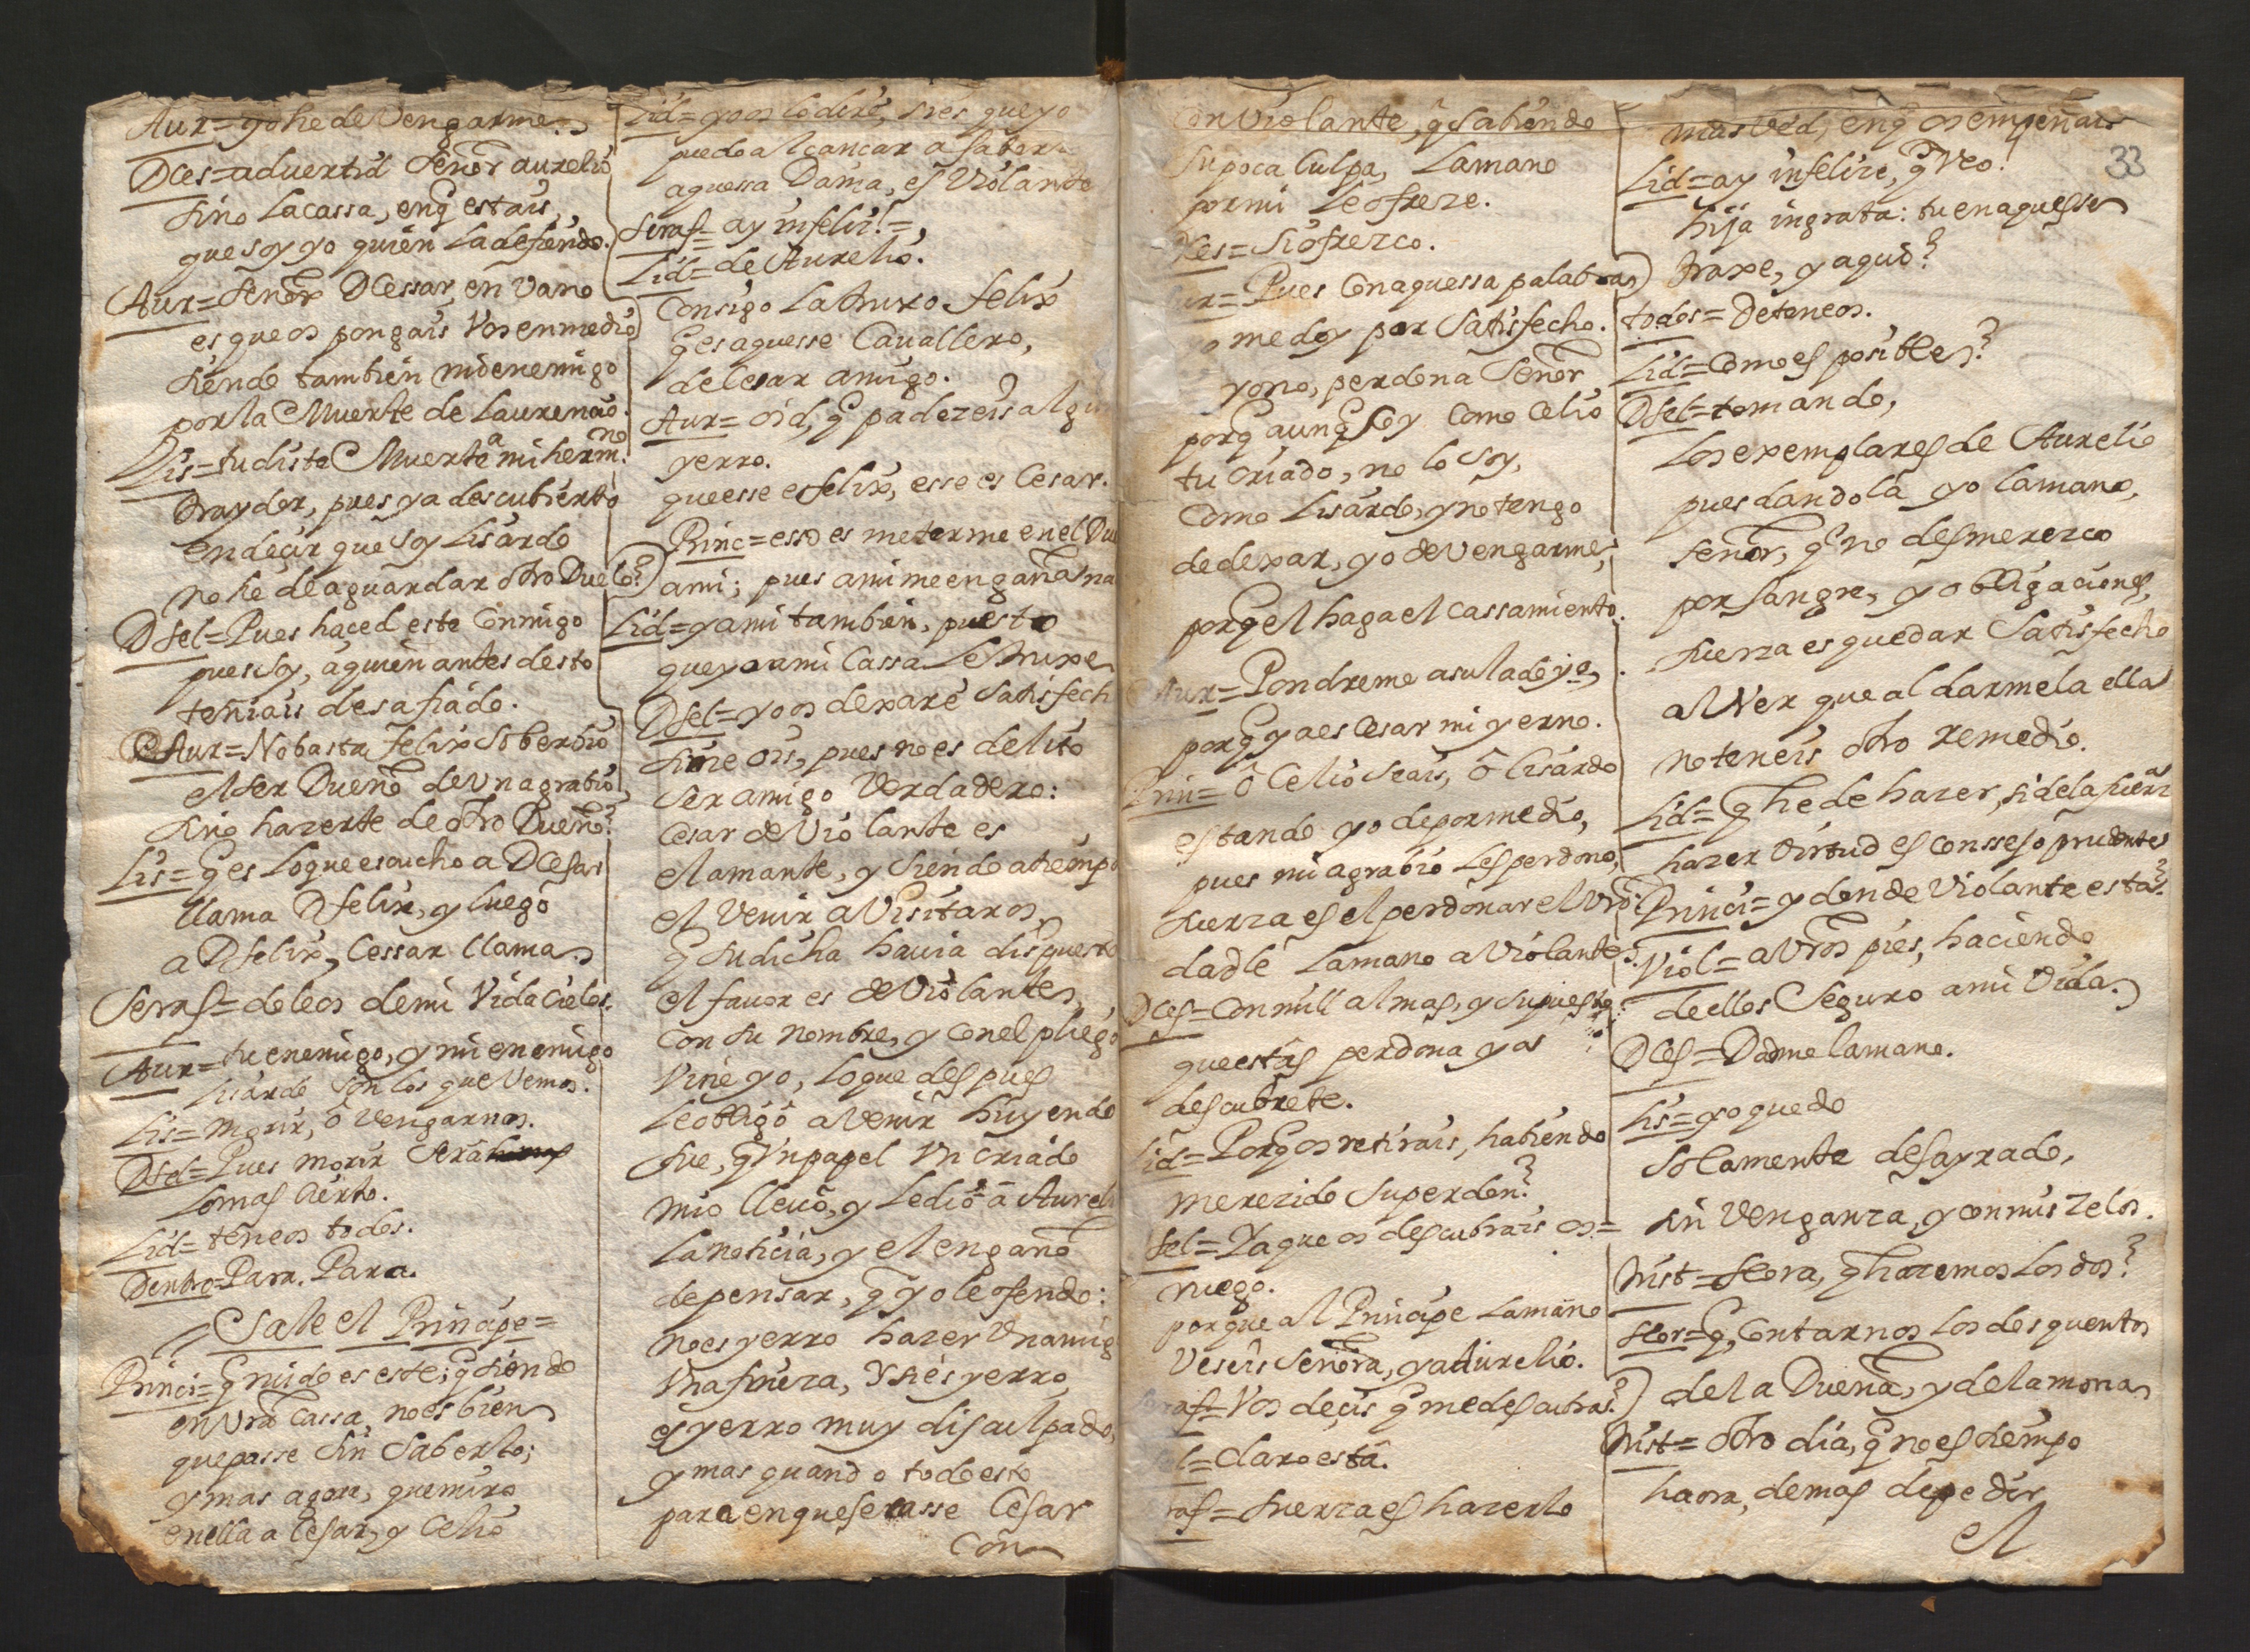 Aur= yo he de Vengarme.
DCes= aduertid Señor aurelio
sino la cassa, en q̃ estais,
que soy yo quien la defiendo.
Aur= Señor D Cessar, en vano
es que os pongais vos en medio
siendo tambien mi enemigo
por la Muerte de Laurencio.
Lis= tu diste Muerte a mi herm.no
traydor, pues ya descubierto
en decir que soy Lisardo
no he de aguardar otro Duelo?
D fel= Pues haced este Conmigo
pues soy, a quien antes desto
teniais desafiado.
Aur= No basta felix soberbio
el ser Dueño de Vn agrabio,
sino hazerte de otro Dueño?
Lis= q̃ es lo que escucho a D Cesar
llama D felix, y luego
a D felix, Cessar llama.
Seraf= doleos de mi Vida Cielos.
Aur= tu enemigo, y mi enemigo
lisardo son los que Vemos.
Lis= Morir, o vengarnos.
D fel= Pues morir sera
lo mas cierto.
Lid= teneos todos.
Dentro= Para. Para.
Sale el Principe=
Princi= q̃ ruido es este; q̃ siendo
en Vrã Cassa, no es bien
que passe sin saberlo;
y mas agora, que miro
en ella a Cesar, y Celio
Lid= yo os lo diré, si es que yo
puedo alcançar a saber.
aquessa Dama, es Violante
Seraf= ay infeliz!=
Lid= de Aurelio.
Consigo la truxo felix
q̃ es aquesse Cauallero,
de Cesar amigo.
Aur= oid, q̃ padezeis algu
yerro.
que esse es felix, esse es Cesar.
Princ= esso es meterme en el Du
a mi; pues a mi me engaña na
Lid= y a mi tambien, puesto
que yo a mi Cassa le truxe
D fel= yo os dexaré satisfech
si me ois, pues no es delito
ser amigo Verdadero:
Cesar de Violante es
el amante, y siendo a tiempo
el venir a Visitaros,
q̃ su dicha hauia dispuesto
el fauor es de Violante,
con su nombre, y con el pliego
Vine yo, lo que despues
le obligó a venir huyendo
fue, q̃ Vn papel Vn criado
mio lleuó, y le dió a Aureli
la noticia, y el engaño
de pensar, q̃ yo le ofendo:
no es yerro hazer Vn amig
Vna fineza, Y si es yerro,
es yerro muy disculpado,
y mas quando todo esto
para en que se casse Cesar
Con
Con Violante, q̃ sabiendo
su poca Culpa, la mano
por mi le ofreze.
Ces= Si ofrezco.
Aur= Pues Con aquessa palabra
yo me doy por satisfecho.
yo no, perdona Señor
porq̃ aunq̃ soy como Celio
tu criado, no lo soy,
como Lisardo, y no tengo
de dexar, yo de vengarme,
porq̃ el haga el cassamiento.
Aur= Pondreme a su lado yo,
porq̃ ya es Cesar mi yerno.
Prin= ó Celio seais, ó lisardo
estando yo de por medio,
pues mi agrabio les perdono,
fuerza es el perdonar el vrõ
dadle la mano a Violante.
DCes= Con mill almas, y supuesto
que estás perdona ya
descubrete.
Lid= Porq̃ os retirais, habiendo
merezido su perdon?
fel= Ya que os descubrais os=
ruego.
porque al Principe la mano
beseis señora, y a Aurelio.
Seraf= Vos deçis q̃ me descubra?
fel= Claro está.
Seraf= fuerza es hazerlo
mas ved, en q̃ os empeñais
33
Lid= ay infelize, q̃ Veo!
hija ingrata: tu en aquesse
traxe, y aqui?
todos= Deteneos.
Lid= Como es posible?
D fel= tomando,
los exemplares de Aurelio
pues dandola yo la mano,
señor, q̃ no desmerezco
por sangre, y obligaciones,
fuerza es quedar satisfecho
al Ver que al darmela ella
no teneis otro remedio.
Lid= q̃ he de hazer, si de la fuerza
hazer Virtud es conssejo prudente
Princi= y donde Violante está?
Viol= a Vrõs pies, haciendo
de ellos Seguro a mi Vida.
DCes= Dadme la mano.
Lis= yo quedo
solamente desayrado,
sin venganza, y con mis zelos.
Trist= flora, q̃ haremos los dos?
flor= q̃, Contarnos los dos quentos
de la Dueña, y de la mona
Trist= otro dia, q̃ no es tiempo
haora, demas de pedir
el